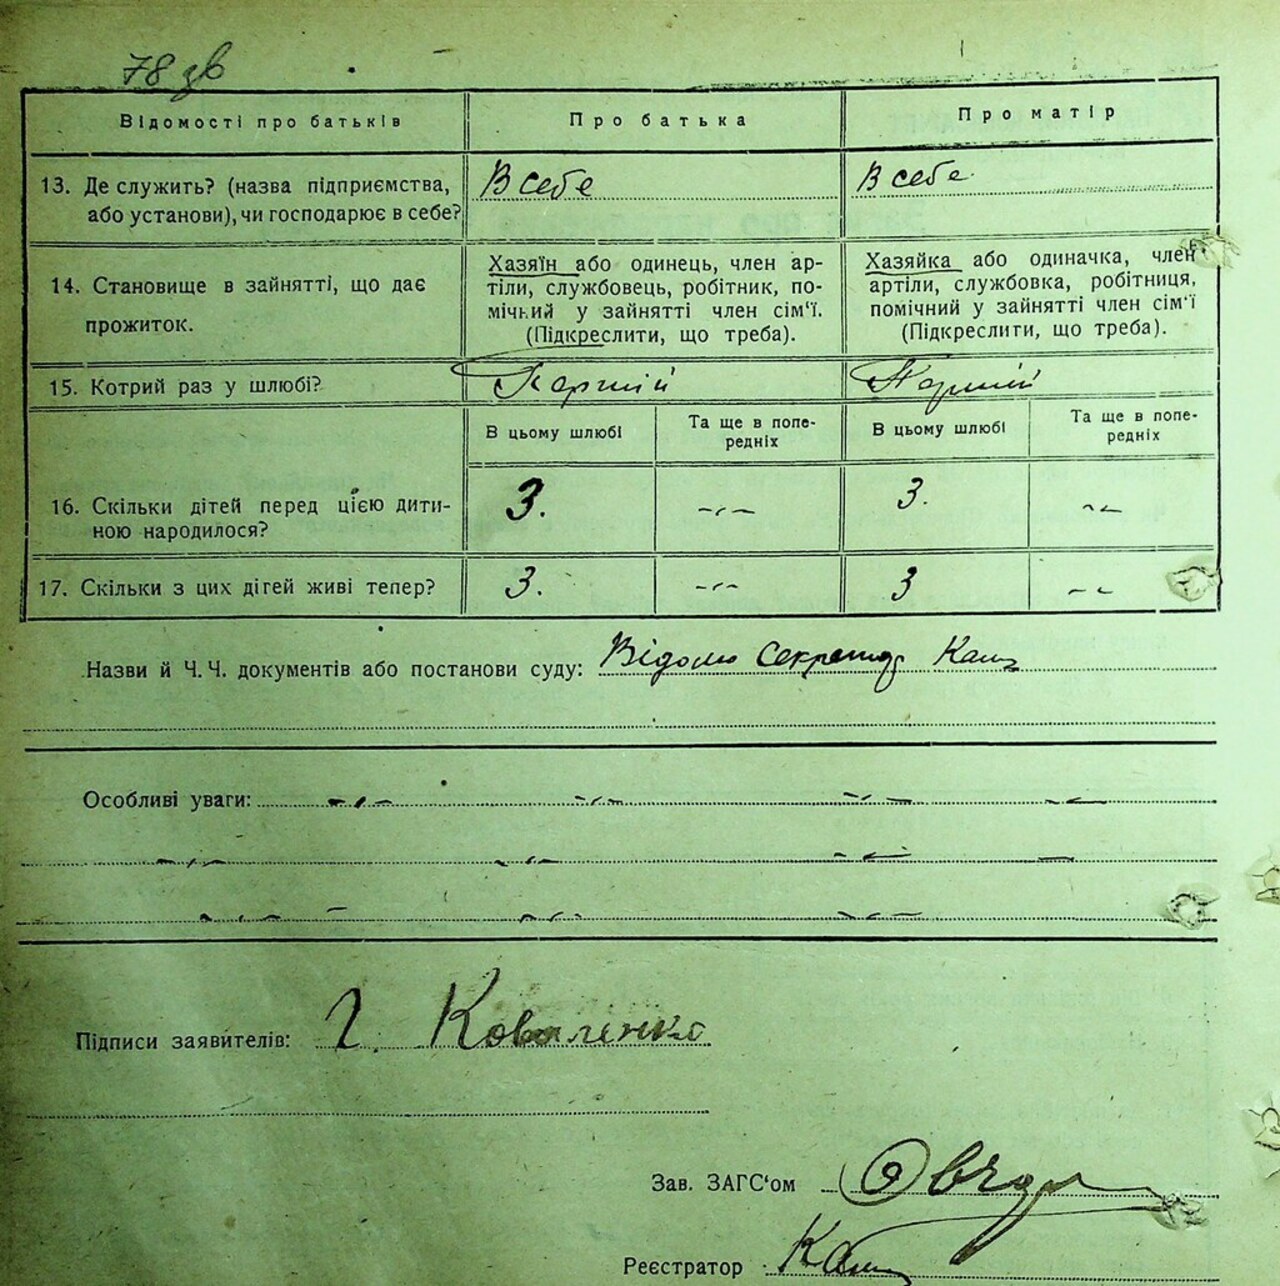 78 зв
Відомості про батьків
Про батька
Про матір
13. Де служить? (назва підприємства,
або установи), чи господарює в себе?
В себе
В себе
14. Становище в зайнятті, що дає
прожиток.
Хазяїн або одинець, член ар-
тіли, службовець, робітник, по-
мічний у зайнятті член сім'ї.
(Підкреслити, що треба).
Хазяйка або одиначка, член
артіли, службовка, робітниця,
помічний у зайнятті член сім'ї
(Підкреслити, що треба).
15. Котрий раз у шлюбі?
В цьому шлюбі
Та ще в попе-
редніх
В цьому шлюбі
Та ще в попе-
редніх
16. Скільки дітей перед цією дити-
ною народилося?
3.
3.
17. Скільки з цих дітей живі тепер?
3.
3
Назви й Ч.Ч. документів або постанови суду: Відомо
Особливі уваги:
Підписи заявителів: Г. Коваленко
Зав. ЗАГС'ом
Реєстратор